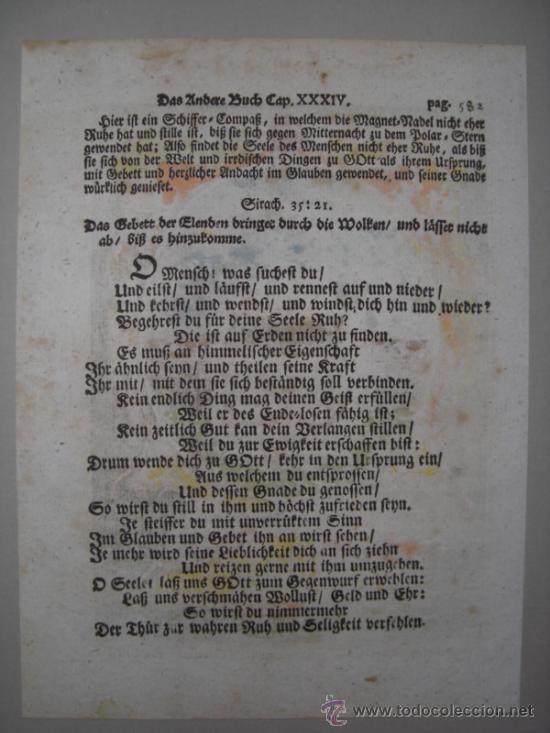 Das Andere Buch Cap. XXXIV. pag. 582
Hier ist ein Schiffer-Compaß, in welchem die Magnet-Nadel nicht eher
Ruhe hat und stille ist, biß sie sich gegen Mitternacht zu dem Polar-Stern
gewendet hat; Also findet die Seele des Menschen nicht eher Ruhe, als biß
sie sich von der Welt und irrdischen Dingen zu GOtt als ihrem Ursprung,
mit Gebett und hertzlicher Andacht im Glauben gewendet, und seiner Gnade
würklich genieset.
Sirach. 35: 21.
Das Gebett der Elenden dringet durch die Wolken/ und lässet nicht
ab/ biß es hinzukomme.
O Mensch! was suchest du/
Und eilst/ und läuffst/ und rennest auf und nieder/
Und kehrst/ und wendst/ und windst dich hin und wieder?
Begehrest du für deine Seele Ruh?
Die ist auf Erden nicht zu finden.
Es muß an himmelischer Eigenschaft
Ihr ähnlich seyn/ und theilen seine Kraft
Ihr mit/ mit dem sie sich beständig soll verbinden.
Kein endlich Ding mag deinen Geist erfüllen/
Weil er des Ende-losen fähig ist;
Kein zeitlich Gut kan dein Verlangen stillen/
Weil du zur Ewigkeit erschaffen bist:
Drum wende dich zu GOtt/ kehr in den Ursprung ein/
Aus welchem du entsprossen/
Und dessen Gnade du genossen/
So wirst du still in ihm und höchst zufrieden seyn.
Je steiffer du mit unverrüktem Sinn
Im Glauben und Gebet ihn an wirst sehen/
Je mehr wird seine Lieblichkeit dich an sich ziehn
Und reizen gerne mit ihm umzugehen.
O Seele! laß uns GOtt zum Gegenwurf erwehlen:
Laß uns verschmähen Wollust/ Geld und Ehr:
So wirst du nimmermehr
Der Thür zur wahren Ruh und Seligkeit verfehlen.
www.todocoleccion.net